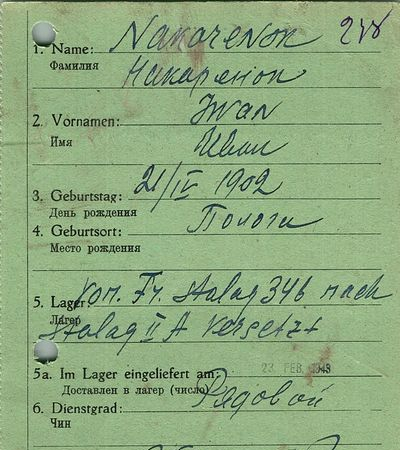 Nakarenok 248
1. Name:
Фамилия
Накаренок
2. Vornamen: Iwan
Имя
Иван
3. Geburtstag: 21/IV 1902
День рождения
4. Geburtsort: Пологи
Место рождения
Vom. Fr. Stalag 346 nach
5. Lager:
Лагер
Stalag II A versetzt
5a. Im Lager eingeliefert am: 23 ФЕВ. 1943
Доставлен в лагер (число)
6. Dienstgrad: Рядовой
Чин